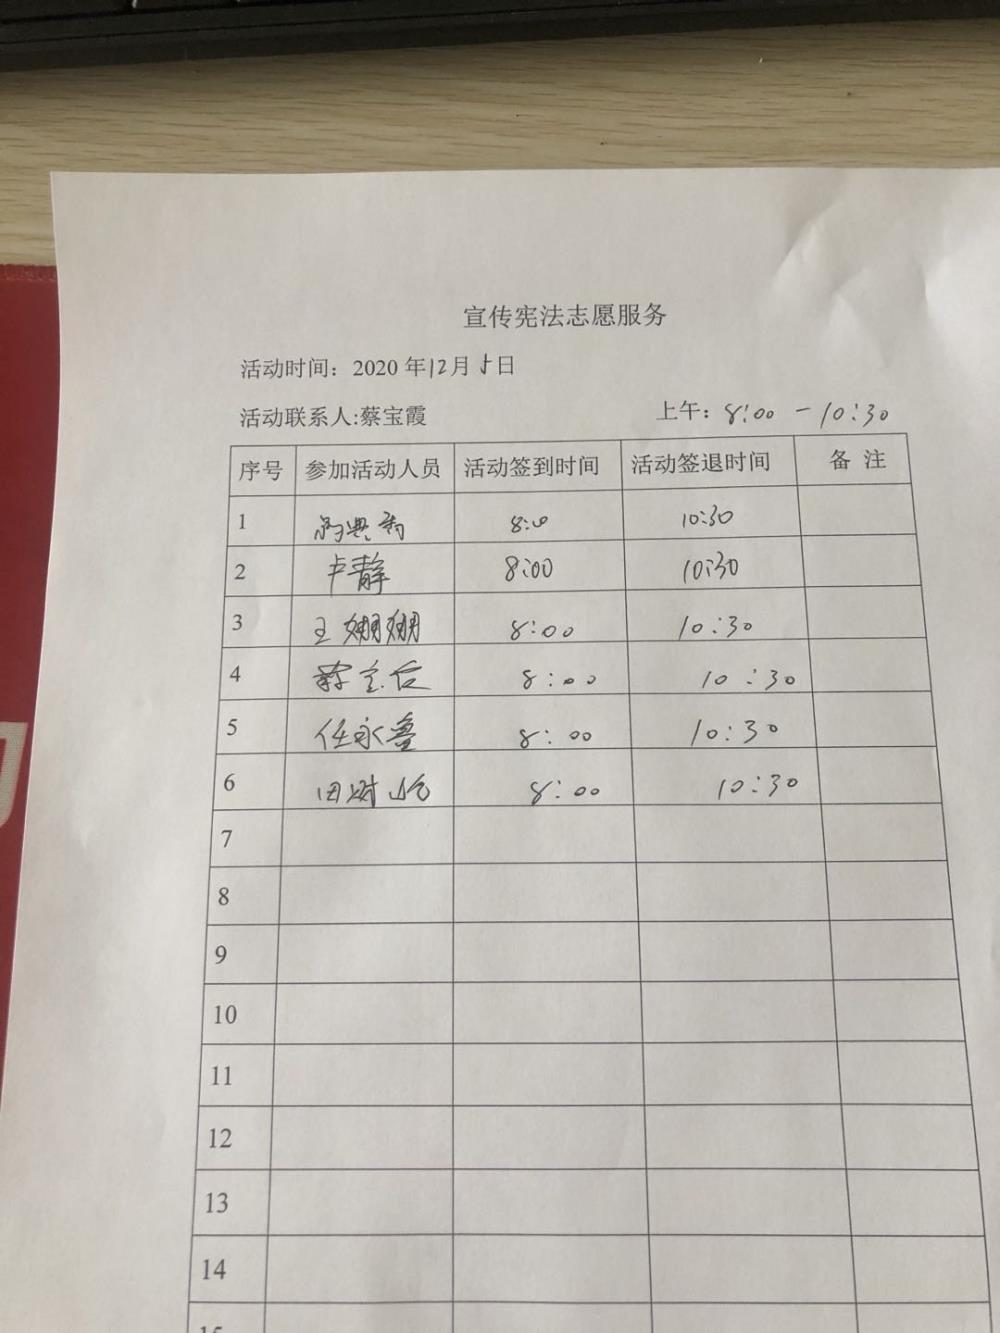 宣传宪法志愿服务
活动时间：2020 年12月5日
活动联系人:蔡宝霞 上午：8:00 - 10:30
序号 参加活动人员 活动签到时间 活动签退时间 备 注
1 8:00 10:30
2 卢静 8:00 10:30
3 王姗姗 8:00 10:30
4 8:00 10:30
5 任永鲁 8:00 10:30
6 田 8:00 10:30
7
8
9
10
11
12
13
14
15